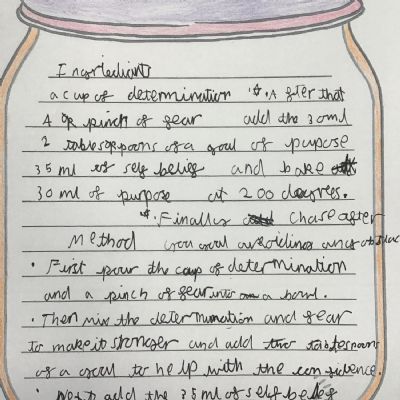 Ingredients
a cup of determination · After that
A pinch of fear add the 30ml
2 tablespoons of a goal of purpose
35 ml of self belief and bake
30 ml of purpose at 200 degrees.
· Finally chase after
Method your goal avoiding any
· First pour the cup of determination
and a pinch of fear into a bowl.
· Then mix the determination and fear
to make it stronger and add two tablespoons
of a goal to help with the confidence.
· Next add the 35 ml of self belief